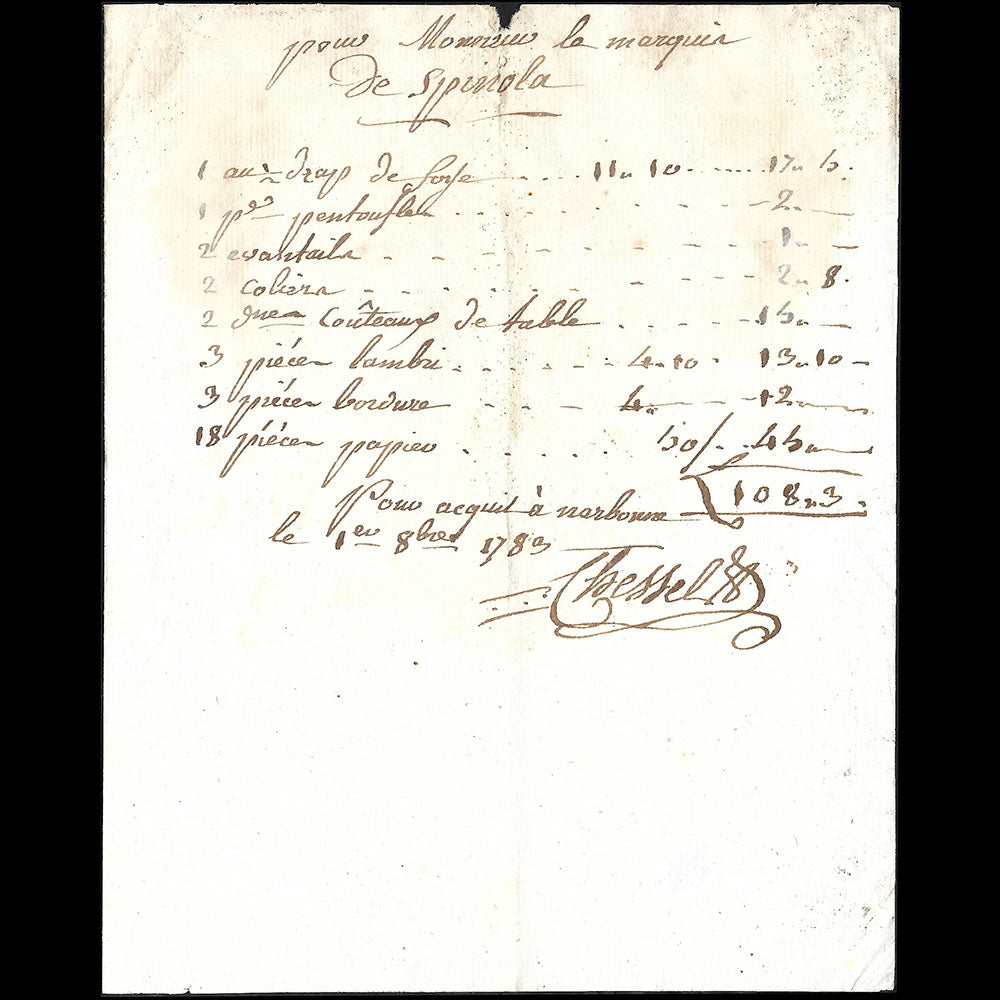 pour Monsieur le marquis
De Spinola
1 au 1/2 drap de soye .... 11 " 10 ...... 17 " 5.
1 pre pentoufles ........ 2 "
2 evantails ....... 1 "
2 coliers ........ 2 " 8.
2 dnes Coûteaux de table .... 15 "
3 piéces lambri ...... 4 " 10 . 13 " 10
3 piéces bordure .... 4 " 12 "
18 piéces papier ..... 50/ .. 45 "
108 " 3.
Pour acquit à narbonne
le 1er 8bre 1783
Chessel